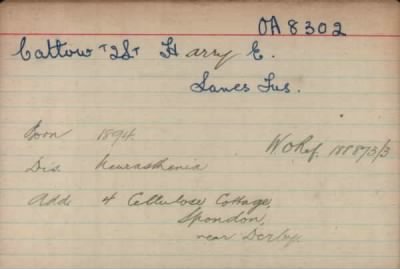 OA 8302
Cattow T2Lt Harry E.
Lancs Fus.
Born 1894.
W O Ref. 188873/3
Dis. Neurasthenia
Add. 4 Cellulose Cottage,
Spondon,
near Derby.